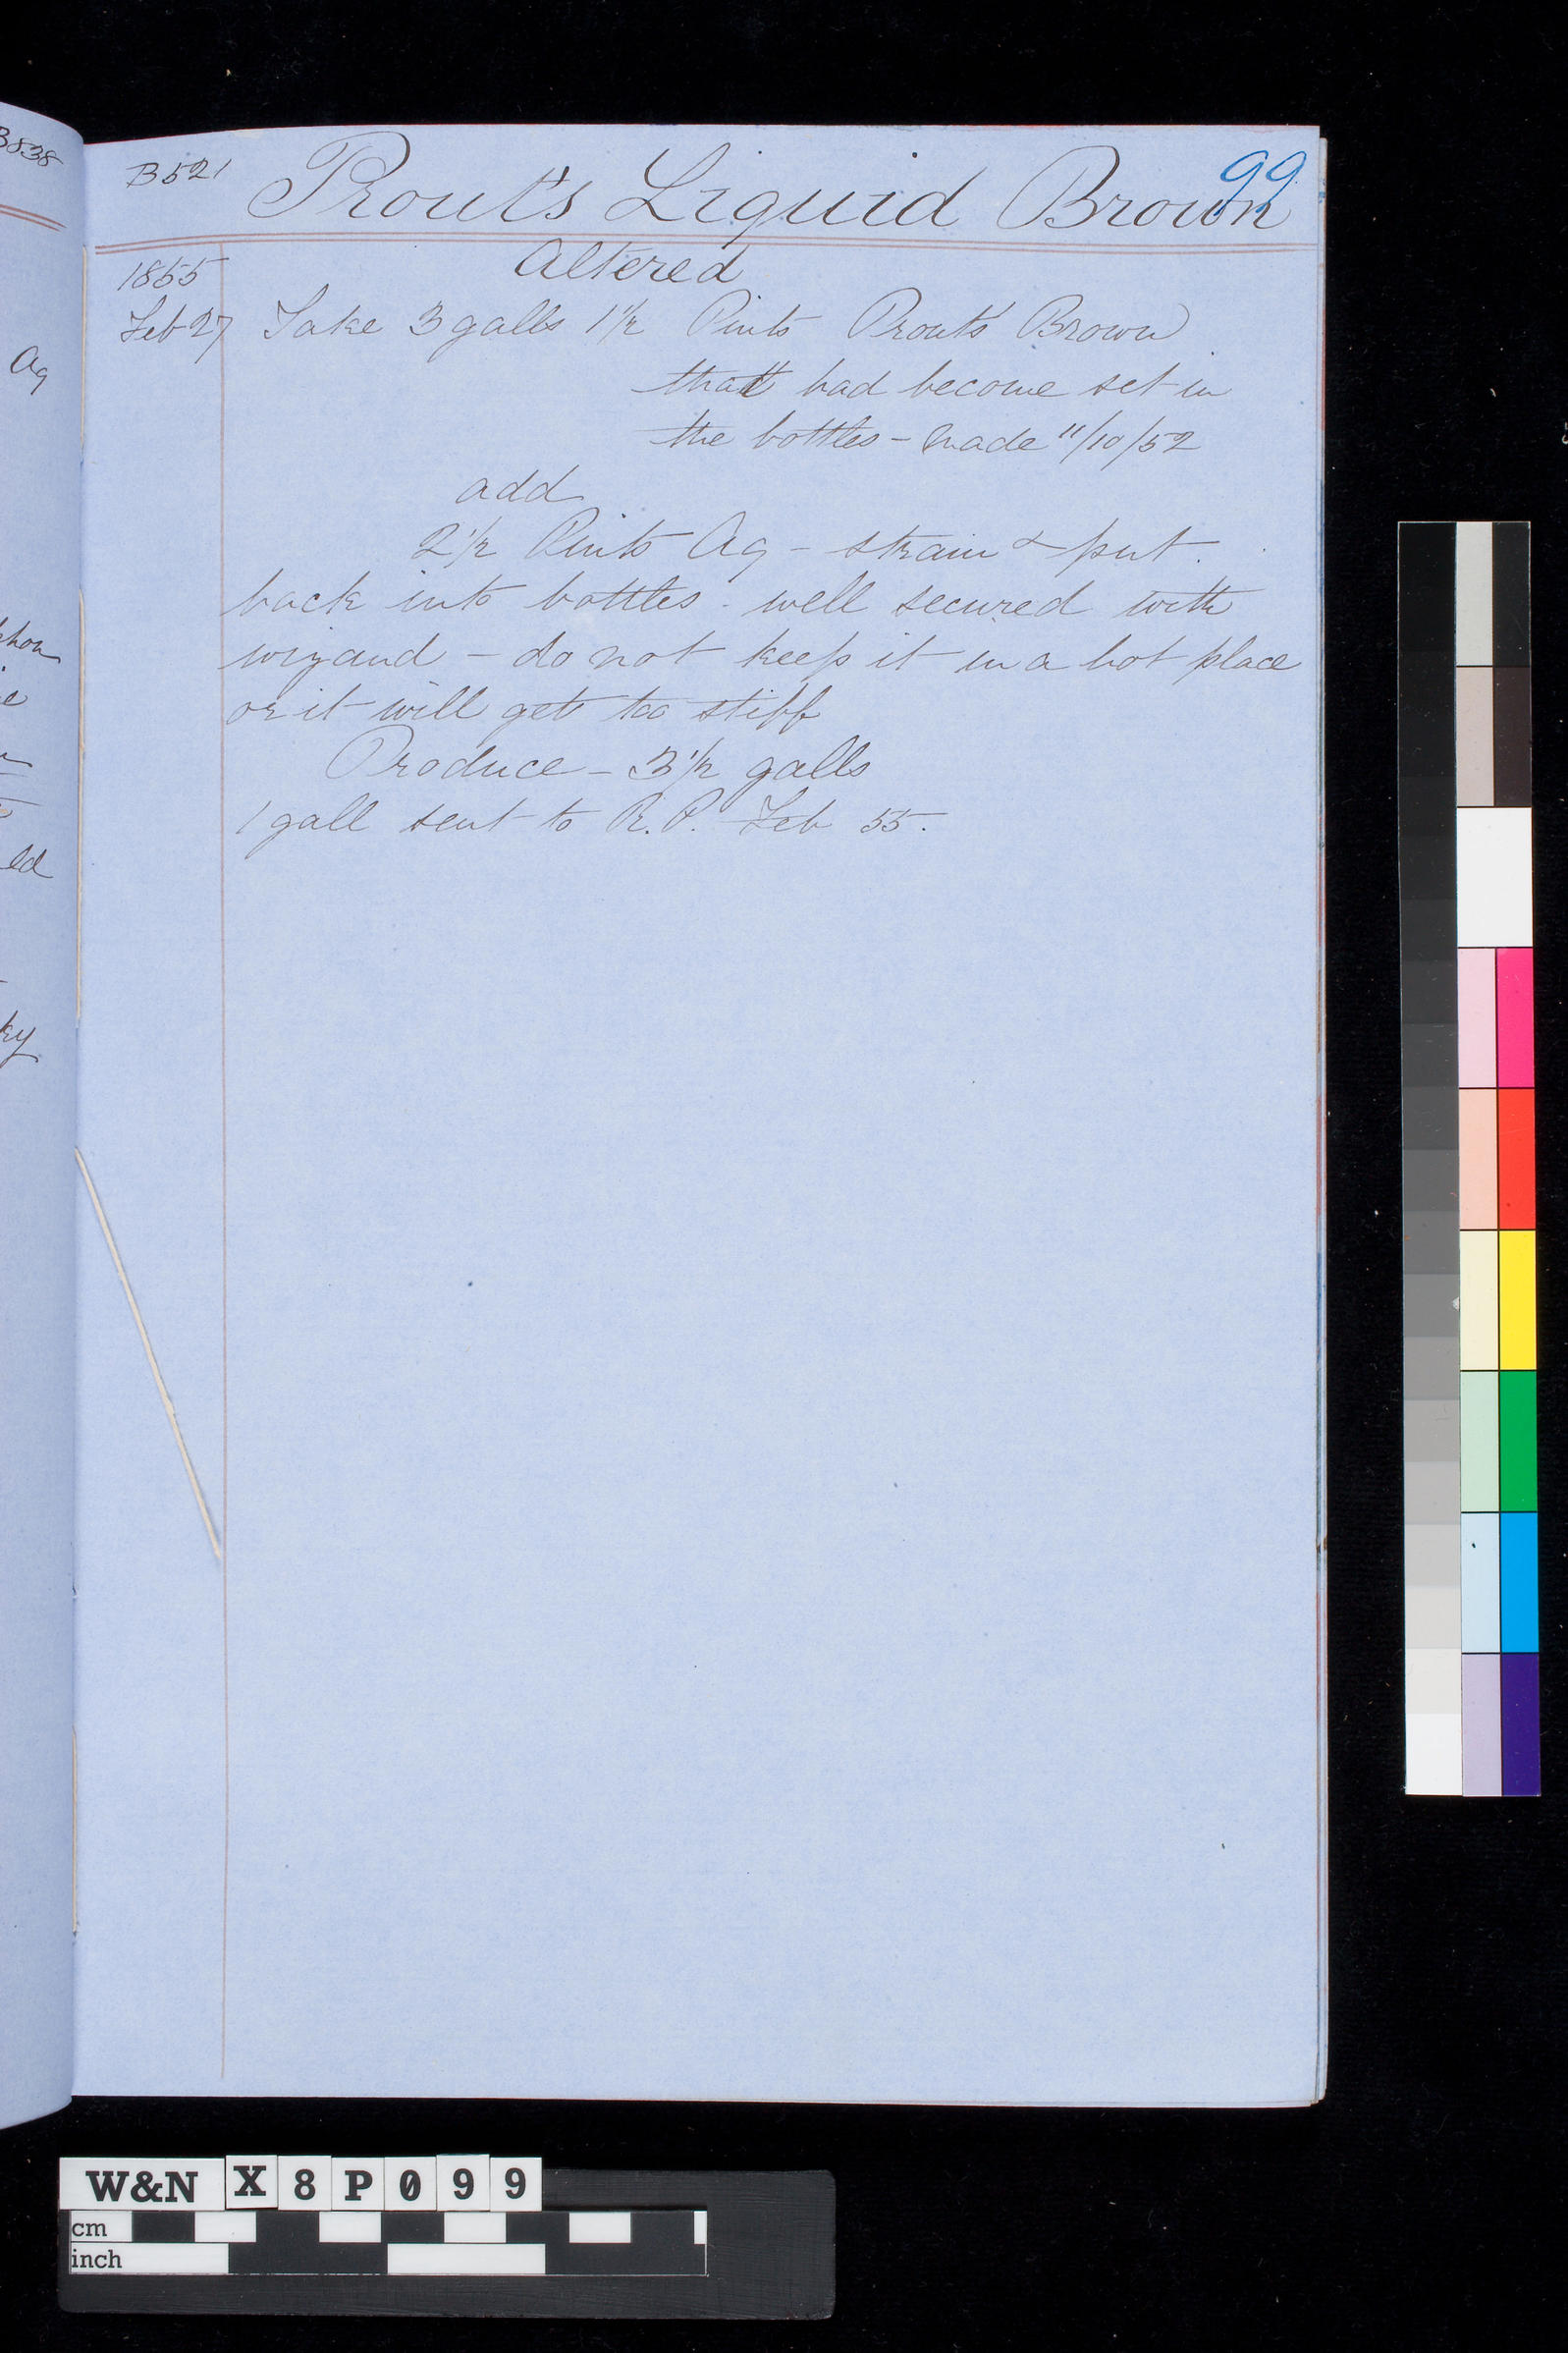 B838
B521 Prout's Liquid Brown 99
Altered
1855
Feb 27 Take 3 galls 1 1/2 Pints Prouts Brown
that had become set in
the bottles - made 11/10/52
add
2 1/2 Pints Aq - strain & put
back into bottles - well secured with
- do not keep it in a hot place
or it will get too stiff
Produce - 3 1/2 galls
1 gall sent to R.P. Feb 55.
Aq
ld
ky
W&N X8P099
cm
inch